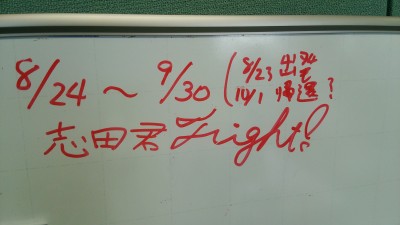 8/24 ～ 9/30 (8/23 出発
10/1 帰還?
志田君 Fight!